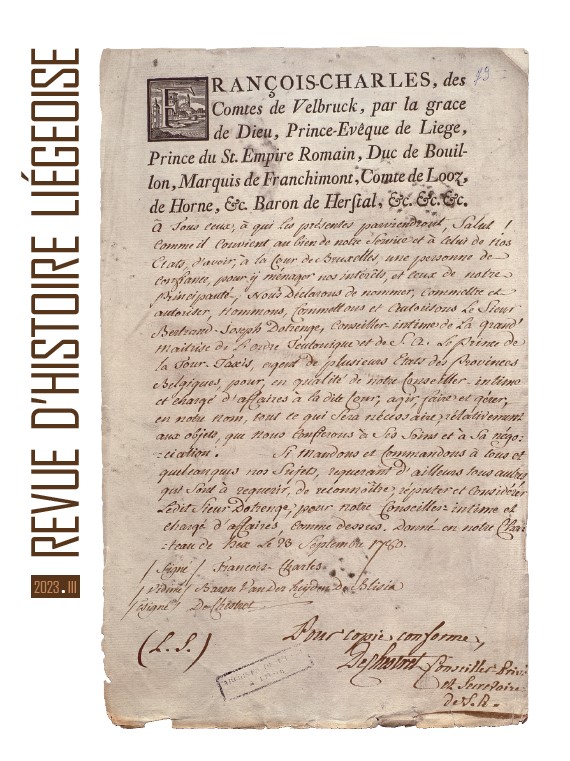 REVUE D'HISTOIRE LIÉGEOISE
2023.III
FRANÇOIS-CHARLES, des
Comtes de Velbruck, par la grace
de Dieu, Prince-Evêque de Liege,
Prince du St. Empire Romain, Duc de Bouil-
lon, Marquis de Franchimont, Comte de Looz,
de Horne, &c. Baron de Herstal, &c. &c. &c.
A Tous ceux, à qui les présentes parviendront, Salut !
Comme il convient au bien de notre Service et à celui de nos
Etats, d'avoir, à la Cour de Bruxelles, une personne de
confiance, pour y ménager nos intérêts, et ceux de notre
Principauté, Nous Déclarons de nommer, commettre et
autoriser, Nommons, Commettons et Autorisons Le Sieur
Bertrand-Joseph Dotrenge, Conseiller intime de La Grande
Maitrise de L'ordre Teutonique et de S. A. Le Prince de
la Tour-Taxis, agent de plusieurs Etats des Provinces
Belgiques, pour, en qualité de notre Conseiller-intime
et chargé d'affaires à la dite Cour, agir, faire et gérer,
en notre nom, tout ce qui sera nécessaire, relativement
aux objets, que nous confierons à Ses Soins et à Sa négo-
-ciation. Si Mandons et Commandons à tous et
quelconques nos Sujets, requerant d'ailleurs tous autres
qui sont à requerir, de reconnaître, réputer et considérer
Ledit Sieur Dotrenge, pour notre Conseiller-intime et
chargé d'affaires, comme dessus. Donné en notre Cha-
-teau de hex Le 23 Septembre 1780.
/Signé/ François-Charles
/Vidimé/ Baron Van der heyden De Blisia
/Signé/ De Chestret
(L.S.)
Pour copie conforme,
De Chestret Conseiller Privé
et Secretaire
de S. A.